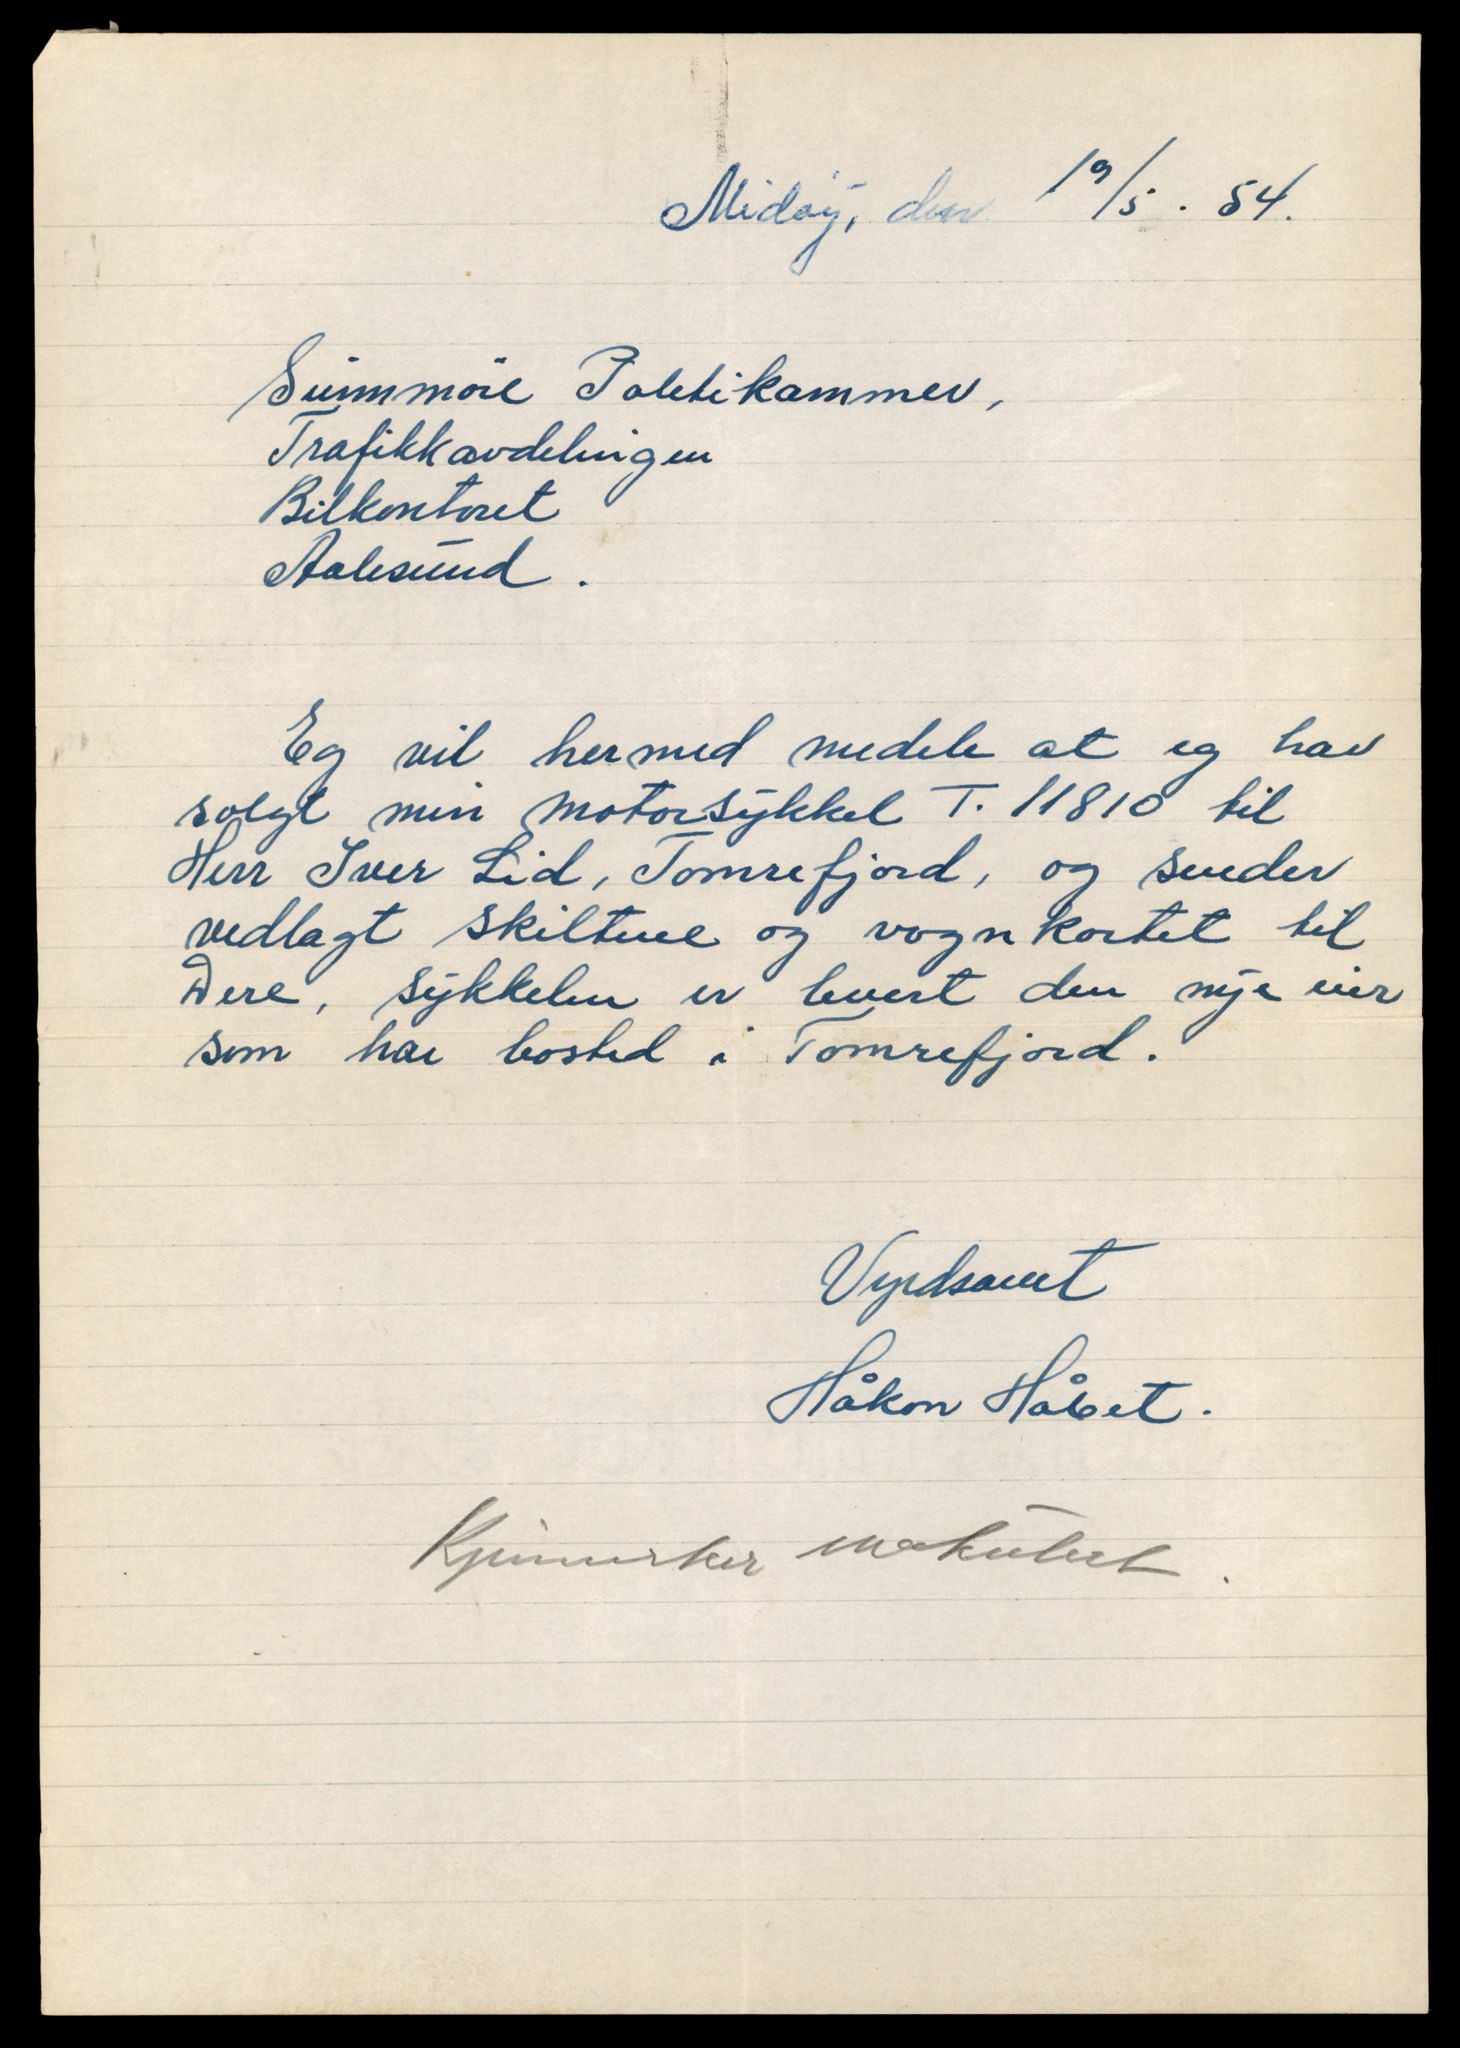 Midøy, den 19/5. 54.
Sunnmøre Politikammer,
Trafikkavdelingen
Bilkontoret
Aalesund.
Eg vil hermed medele at eg har
solgt min motorsykkel T. 11810 til
Herr Iver Lid, Tomrefjord, og sender
vedlagt skiltene og vognkortet til
Dere, sykkelen er levert den nye eier
som har bosted i Tomrefjord.
Vyrdsamt
Håkon Håbet.
Kjennmerker makulert.